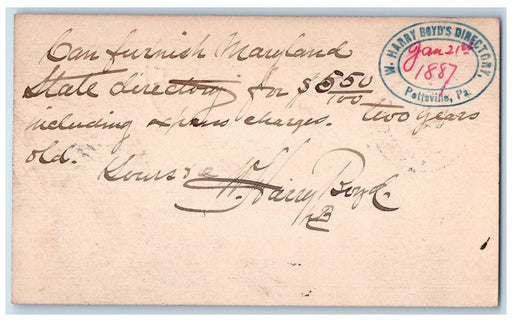 W. HARRY BOYD'S DIRECTORY
Jan 21st
1887
Pottsville, Pa.
Can furnish Maryland
State directory for $5 50/100
including express charges. two years
old.
Yours &c W. Harry Boyd